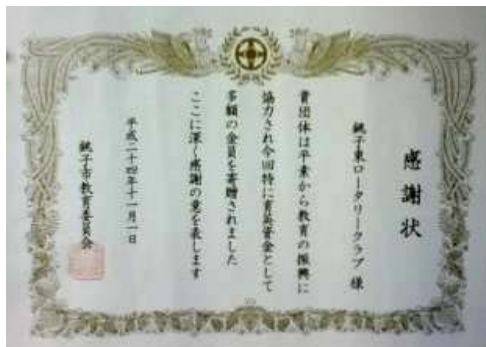 感謝状
銚子東ロータリークラブ 様
貴団体は平素から教育の振興に
協力され今回特に育英資金として
多額の金員を寄贈されました
ここに深く感謝の意を表します
平成二十四年十一月一日
銚子市教育委員会